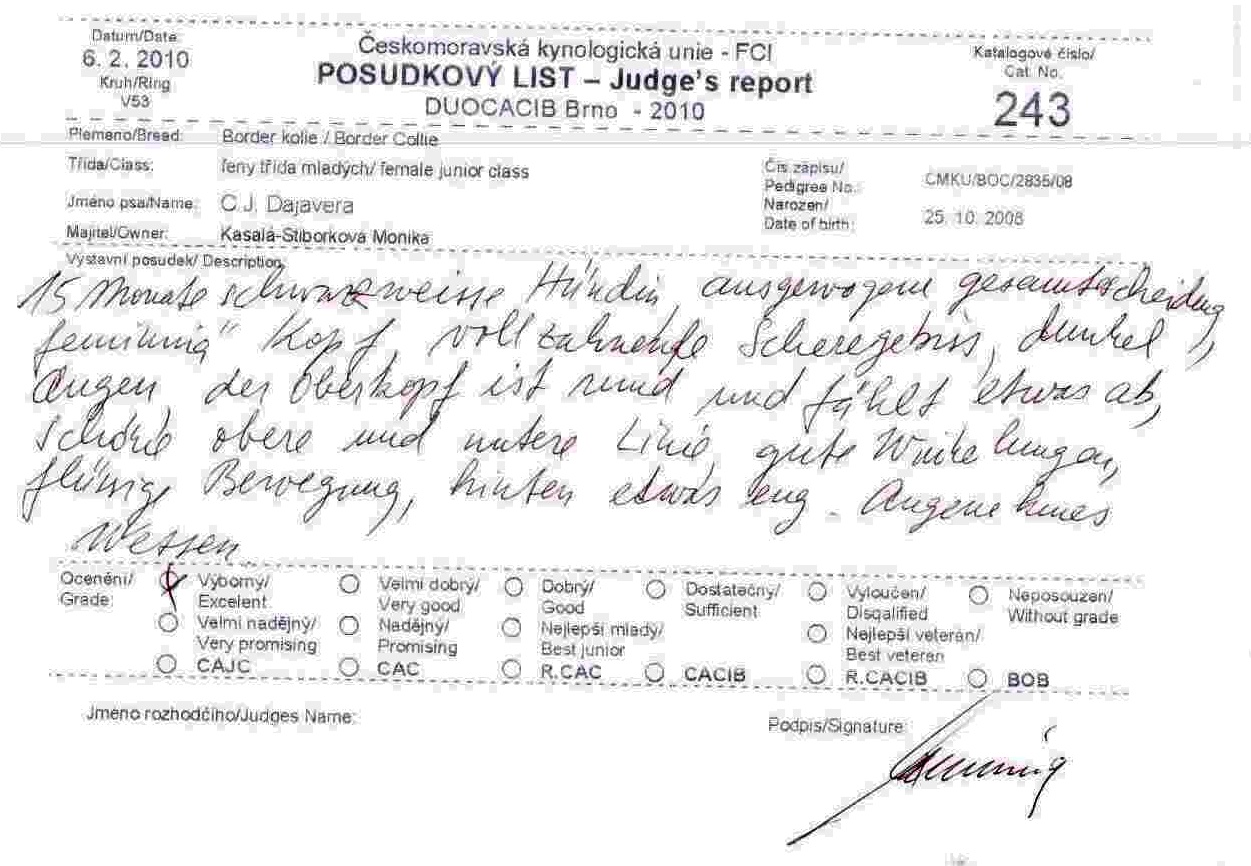 Datum/Date:
6. 2. 2010
Kruh/Ring
V53
Českomoravská kynologická unie - FCI
POSUDKOVÝ LIST – Judge's report
DUOCACIB Brno - 2010
Katalogové číslo/
Cat. No.
243
Plemeno/Breed: Border kolie / Border Collie
Třída/Class: feny třída mladých/ female junior class
Čís zápisu/
Pedigree No.: CMKU/BOC/2835/08
Jméno psa/Name: C.J. Dajavera
Narozen/
Date of birth: 25. 10. 2008
Majitel/Owner: Kasalá-Stiborková Monika
Výstavní posudek/ Description
15 Monate schwarzweisse Hündin, ausgewogene
Kopf, Scheregebiss, dunkel
Augen der Oberkopf ist rund und fählt etwas ab,
schöne obere und untere Linie, gute Winkelungen,
flüssige Bewegung, hinten etwas eng. Angenehmes
Wessen
Ocenění/ Grade:
Výborný/ Excelent
Velmi dobrý/ Very good
Dobrý/ Good
Dostatečný/ Sufficient
Vyloučen/ Disqalified
Neposouzen/ Without grade
Velmi nadějný/ Very promising
Nadějný/ Promising
Nejlepší mladý/ Best junior
Nejlepší veterán/ Best veteran
CAJC CAC R.CAC CACIB R.CACIB BOB
Jméno rozhodčího/Judges Name:
Podpis/Signature: